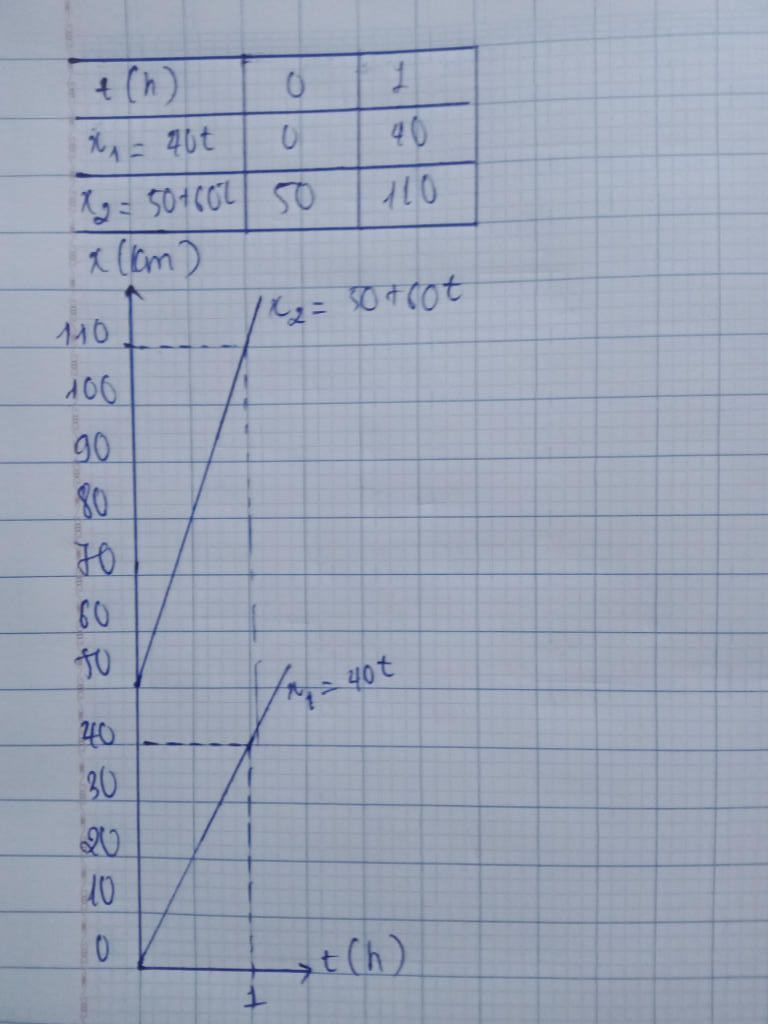 t(h) 0 1
x₁ = 40t 0 40
x₂ = 50+60t 50 110
x(km)
x₂ = 50+60t
110
100
90
80
70
60
50
x₁ = 40t
40
30
20
10
0
t(h)
1